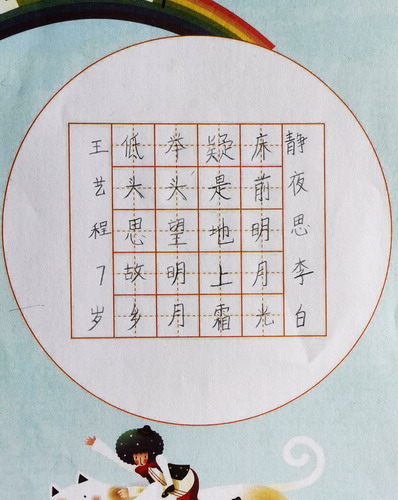 静夜思李白
床前明月光
疑是地上霜
举头望明月
低头思故乡
王艺程7岁